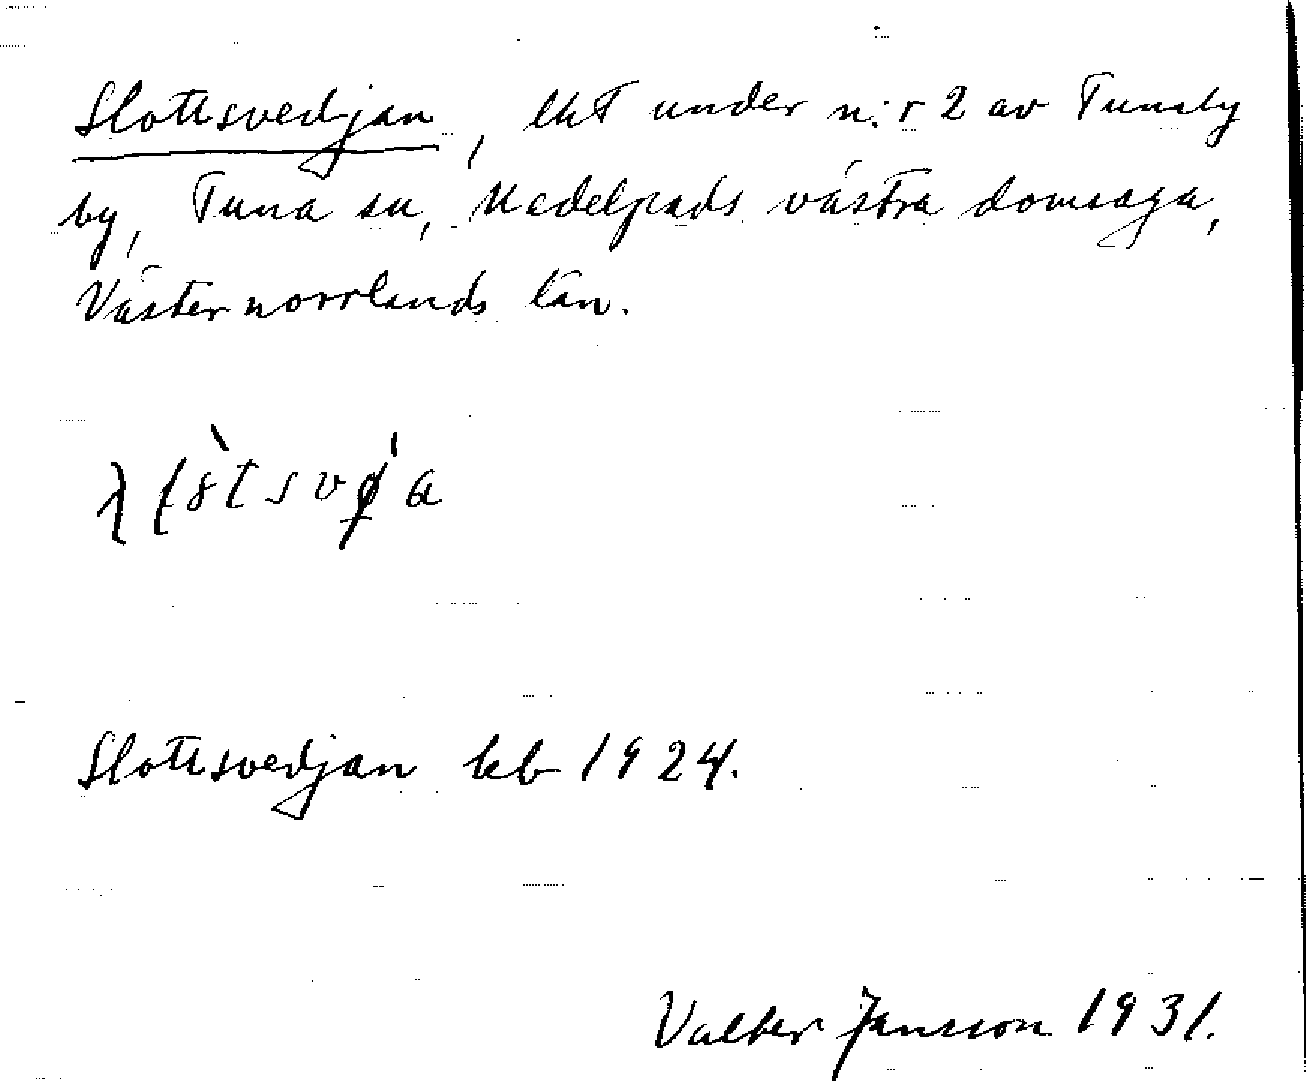 Slottsvedjan, lht under n:r 2 av Tunaby
by, Tuna sn, Medelpads västra domsaga,
Västernorrlands län.
Slottsvedjan kb 1924.
Valter Jansson 1931.